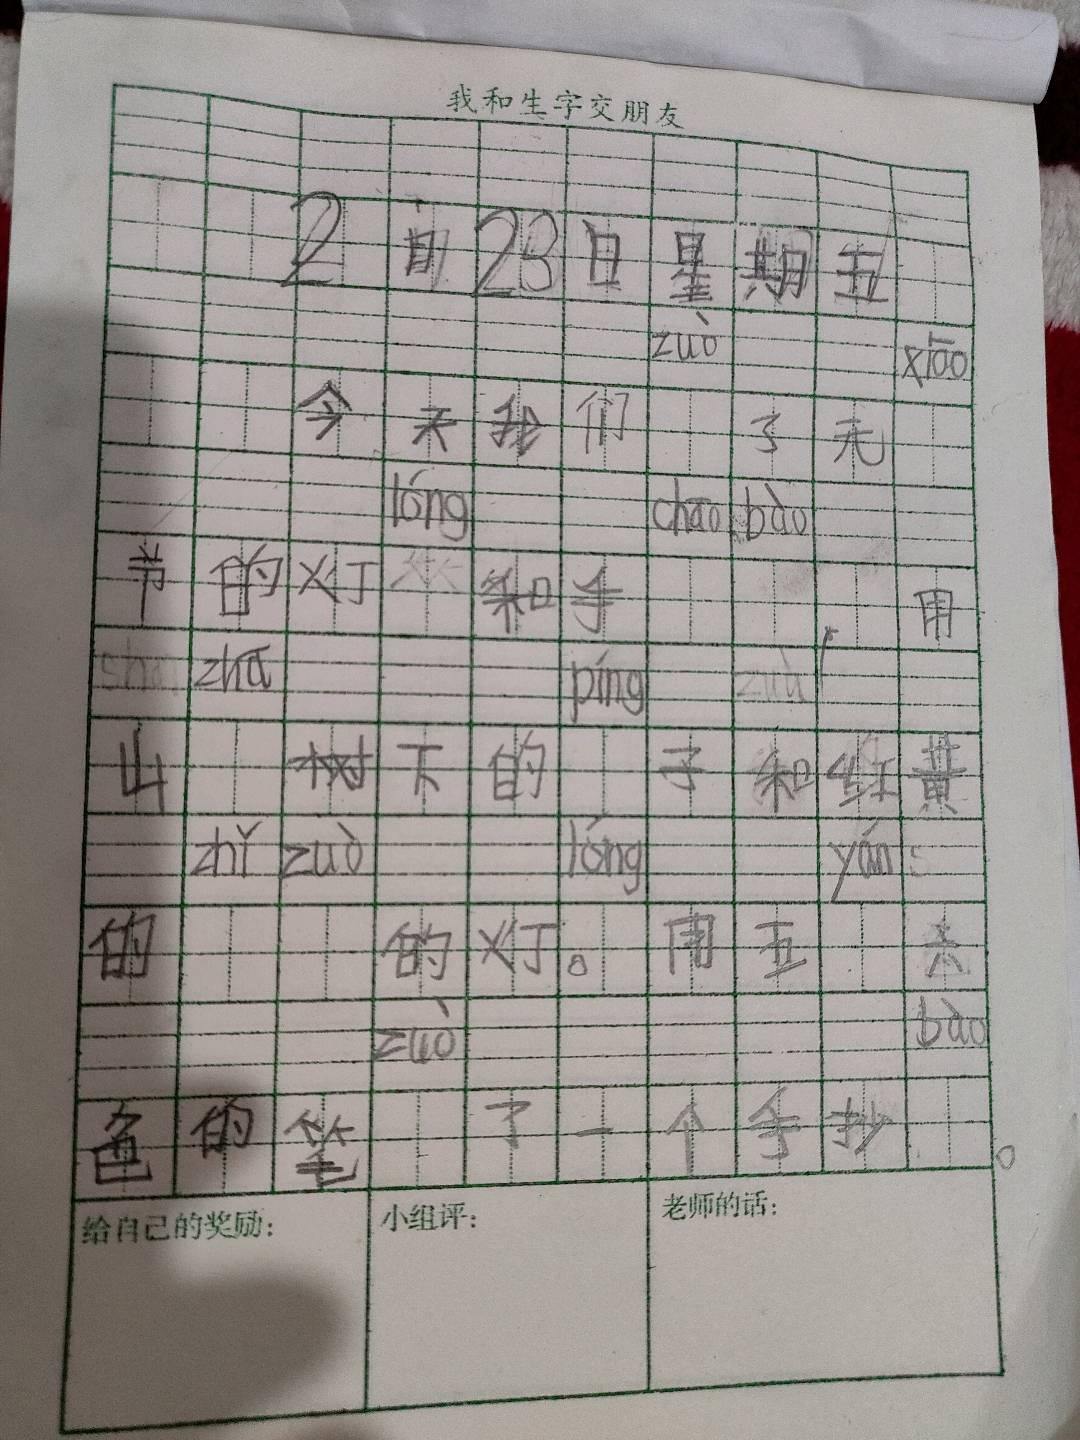 我和生字交朋友
2月23日星期五
zuò xiāo
今天我们 了元
lóng chāo bào
节的灯 和手 用
zhā píng
山 树下的 子和红黄
zhǐ zuò lóng yán
的 的灯。用五 六
zuò bào
色的笔 了一个手抄 。
给自己的奖励: 小组评: 老师的话: